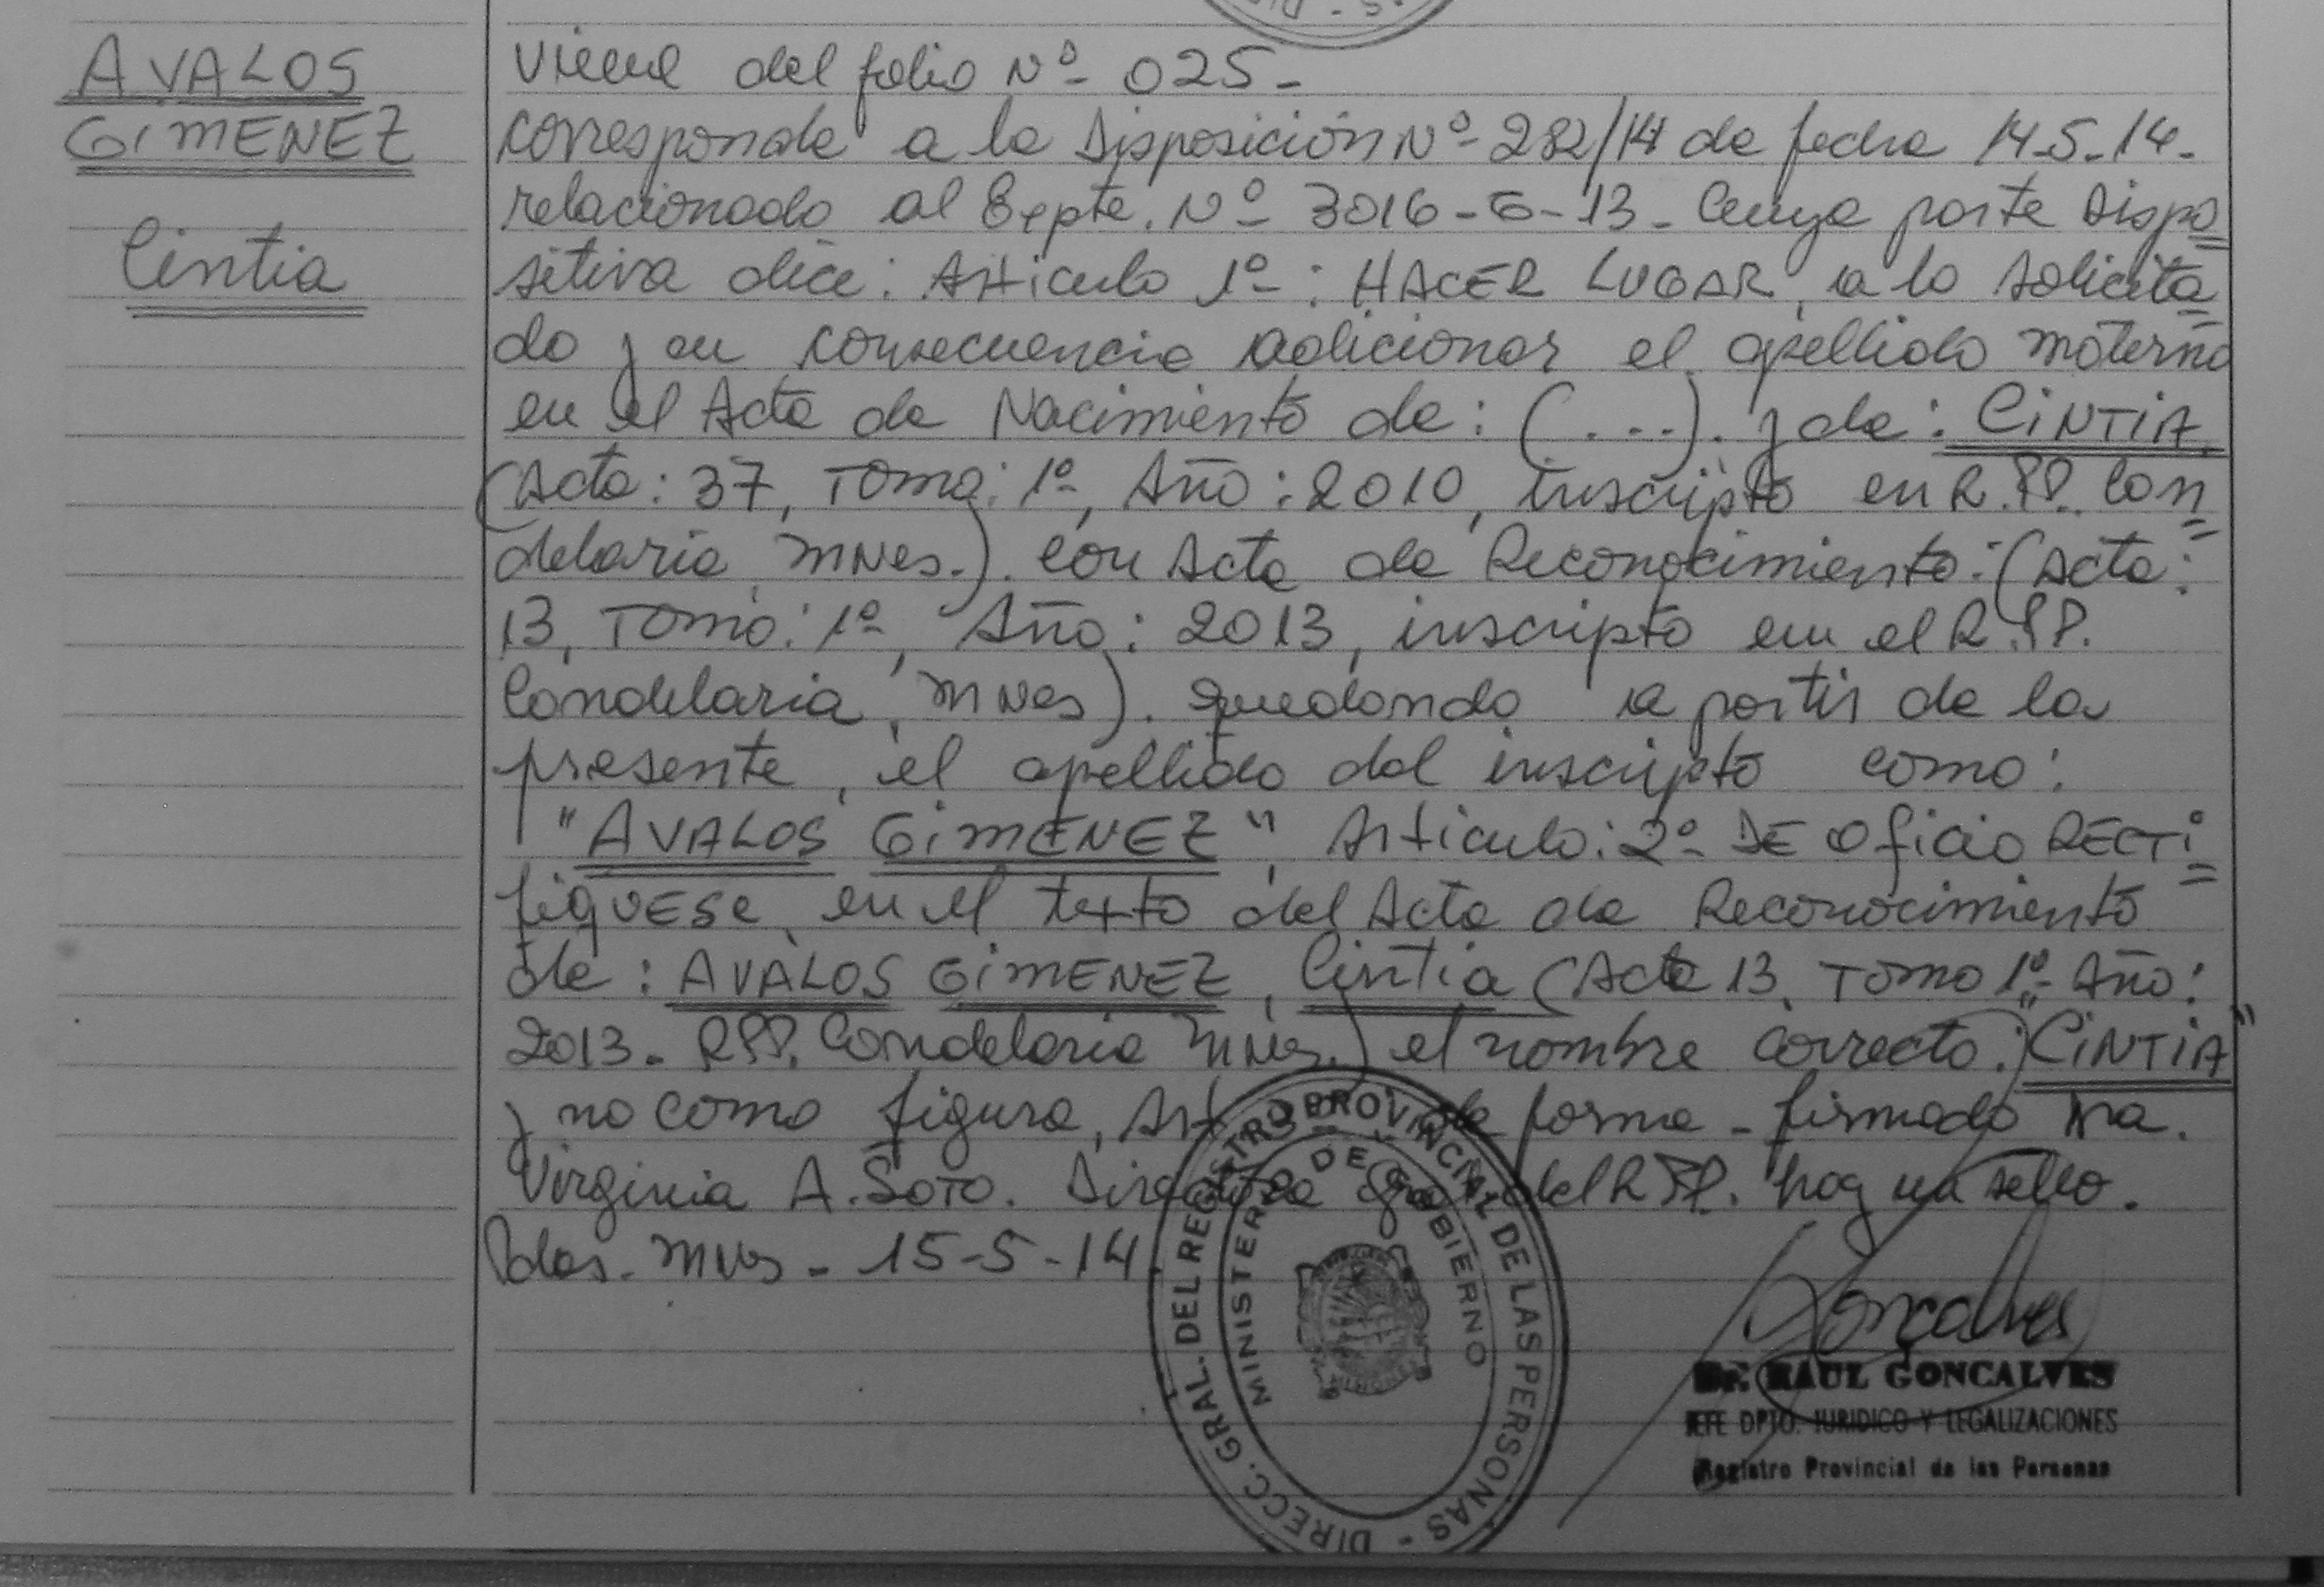 AVALOS
GIMENEZ
Cintia
Viene del folio Nº 025-
Corresponde a la Disposición Nº 282/14 de fecha 14-5-14-
relacionado al Expte. Nº 3016-G-13- Cuya parte Dispo
sitiva dice: Artículo 1º: HACER LUGAR, a lo solicita
do y en consecuencia adicionar el apellido materno
en el Acta de Nacimiento de: (...). y de: CINTIA,
(Acta: 37, Tomo: 1º, Año: 2010, inscripto en R.PP. Can
delaria, MNes.). con Acta de Reconocimiento: (Acta:
13, Tomo: 1º, Año: 2013, inscripto en el R.PP.
Candelaria, MNes). quedando a partir de la
presente, el apellido del inscripto como:
"AVALOS GIMENEZ", Artículo: 2º DE Oficio RECTI
fiquESE, en el texto del Acta de Reconocimiento
de: AVALOS GIMENEZ, Cintia (Acta 13, Tomo 1º- Año:
2013- RPP. Candelaria MNes.) el nombre correcto: "CINTIA"
y no como figura, Art de forma - firmado
Virginia A. SOTO. Directora Gral del RPP. hay un sello.
Pdas. MNes - 15-5-14
DIRECC. GRAL. DEL REGISTRO PROVINCIAL DE LAS PERSONAS -
MINISTERIO DE GOBIERNO
Goncalves
Dr. RAUL GONCALVES
JEFE DPTO. JURIDICO Y LEGALIZACIONES
Registro Provincial de las Personas